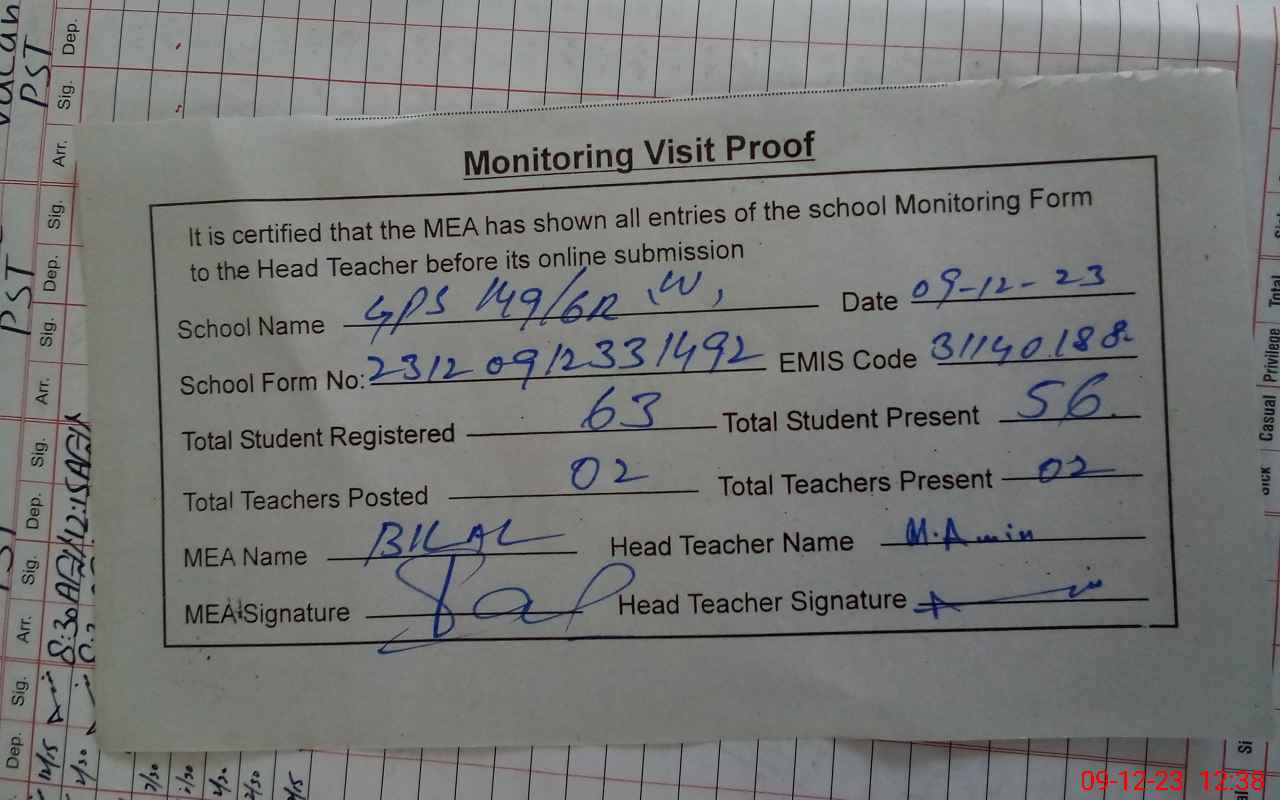 Monitoring Visit Proof
It is certified that the MEA has shown all entries of the school Monitoring Form
to the Head Teacher before its online submission
School Name GPS 149/6R (W) Date 09-12-23
School Form No: 2312091233 1492 EMIS Code 31140188
Total Student Registered 63 Total Student Present 56
Total Teachers Posted 02 Total Teachers Present 02
MEA Name BILAL Head Teacher Name M. Amin
MEA Signature Head Teacher Signature
Dep. Sig. Arr. Sig. Dep. Sig. Arr. Sig. Dep. Sig. Arr. Sig. Dep.
PST
PST
8:30
12:15
Sick Casual Privilege Total
09-12-23 12:38